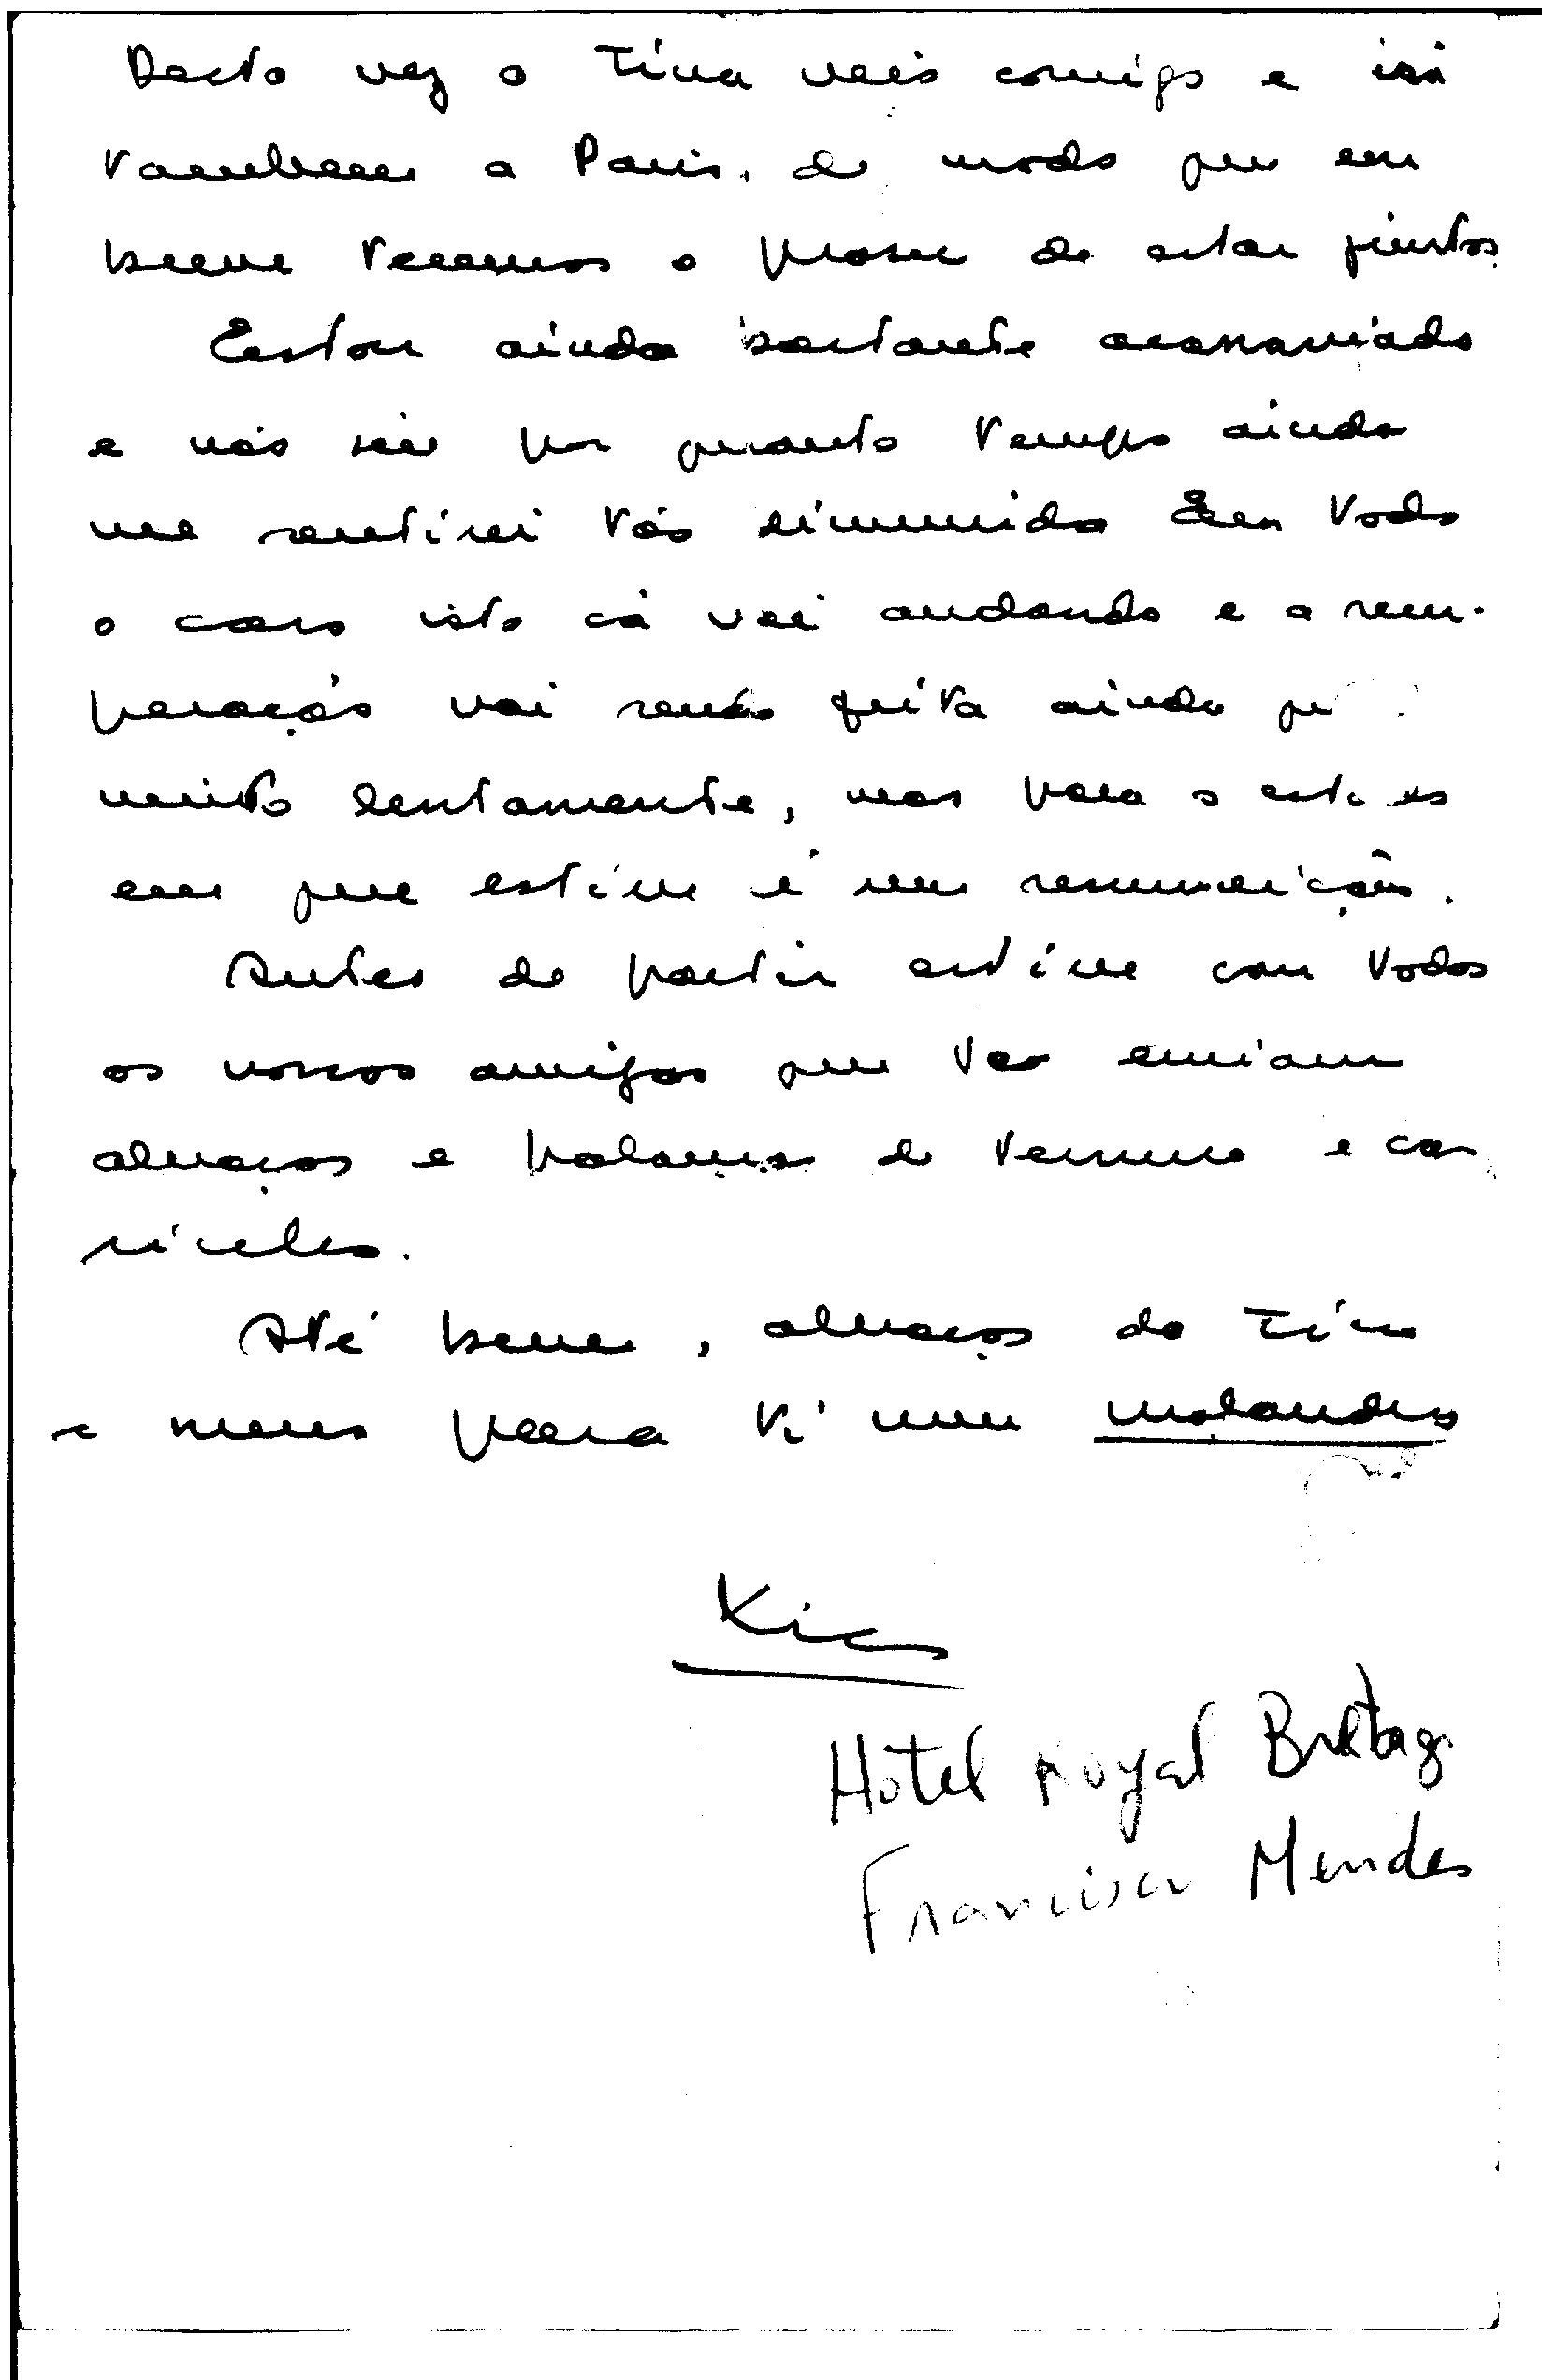 Desta vez a Tina veio comigo e irá
também a Paris, de modo que em
breve teremos o prazer de estar juntos.
Estou ainda bastante
e não sei por quanto tempo ainda
me sentirei tão diminuído Em todo
o caso isto cá vai andando e a recu-
peração vai sendo feita ainda
muito lentamente, mas para o estado
em que estive é uma ressurreição.
Antes de partir estive com todos
os nossos amigos que te enviam
abraços e palavras de ternura e ca
Até breve, abraços da Tina
e meus para ti num
Hotel Royal Bretag
Francisco Mendes